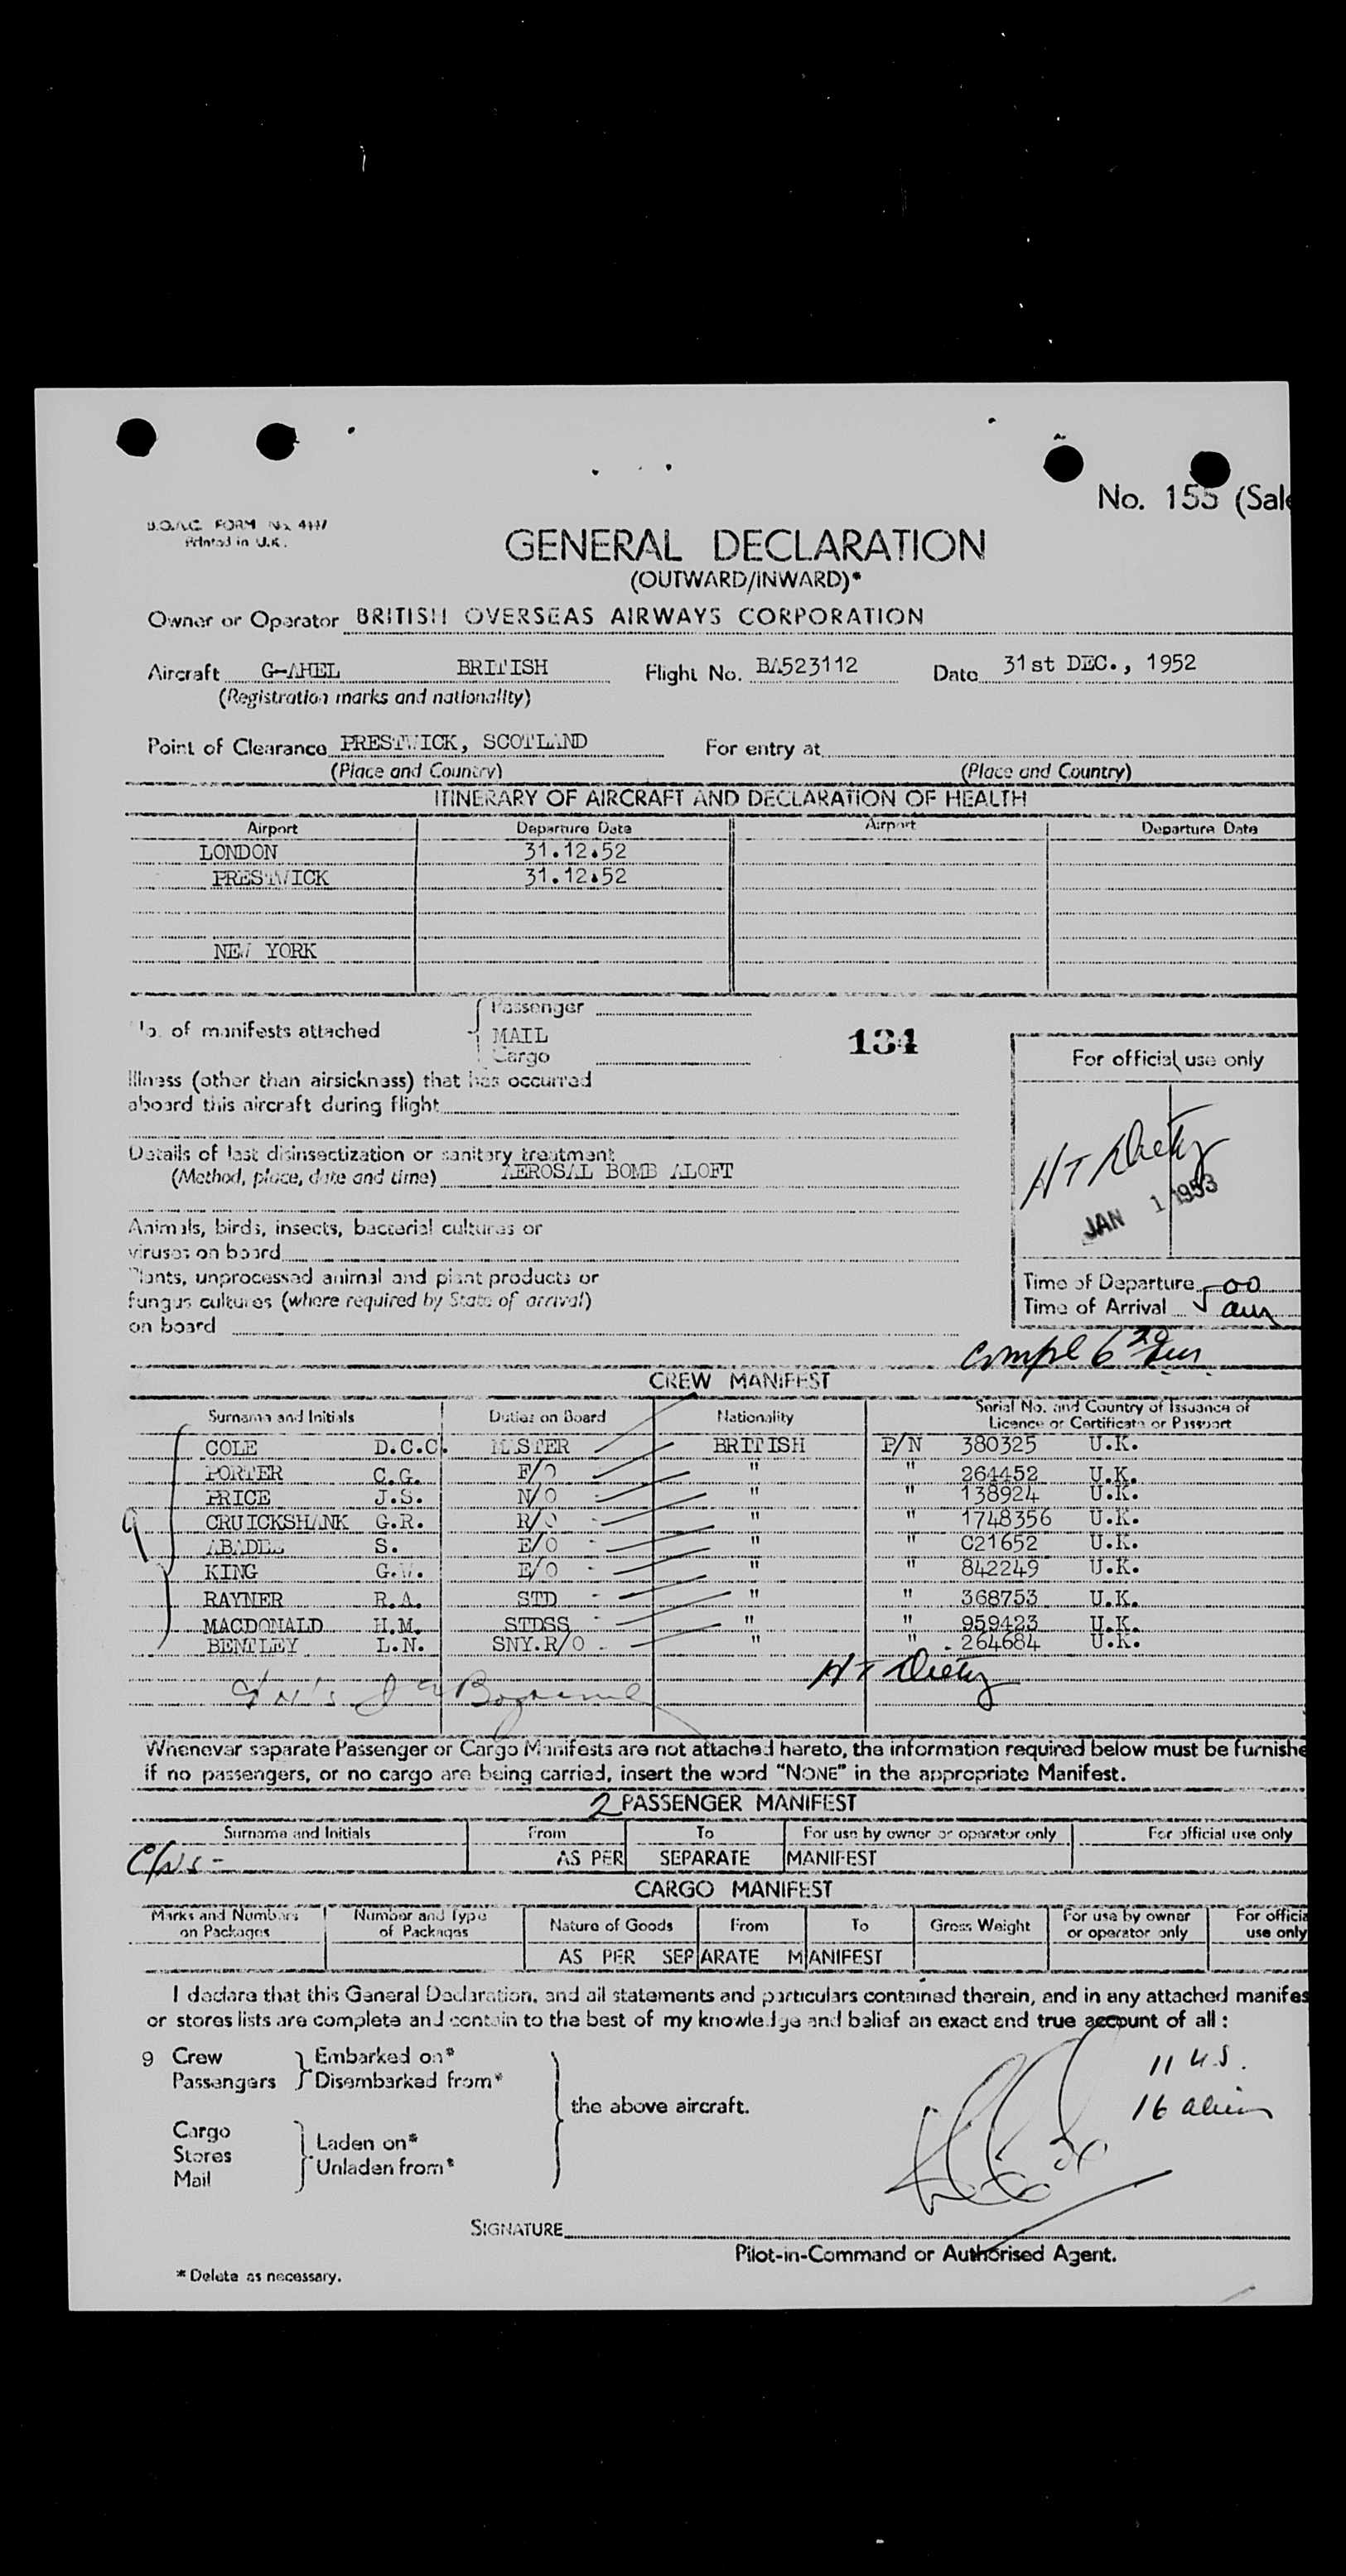 No. 155 (Sale
B.O.A.C. FORM No. 4447
Printed in U.K.
GENERAL DECLARATION
(OUTWARD/INWARD)*
Owner or Operator BRITISH OVERSEAS AIRWAYS CORPORATION
Aircraft G-AHEL BRITISH Flight No. BA523112 Date 31st DEC., 1952
(Registration marks and nationality)
Point of Clearance PRESTWICK, SCOTLAND For entry at
(Place and Country) (Place and Country)
ITINERARY OF AIRCRAFT AND DECLARATION OF HEALTH
Airport Departure Date Airport Departure Date
LONDON 31.12.52
PRESTWICK 31.12.52
NEW YORK
No. of manifests attached Passenger
MAIL
Cargo
134
For official use only
Illness (other than airsickness) that has occurred
aboard this aircraft during flight
Details of last disinsectization or sanitary treatment
(Method, place, date and time) AEROSAL BOMB ALOFT
H T Dietz
JAN 1 1953
Animals, birds, insects, bacterial cultures or
viruses on board
Plants, unprocessed animal and plant products or
fungus cultures (where required by State of arrival)
on board
Time of Departure 500
Time of Arrival am
Compl 6
CREW MANIFEST
Surname and Initials Duties on Board Nationality Serial No. and Country of Issuance of
Licence or Certificate or Passport
COLE D.C.C. MASTER BRITISH P/N 380325 U.K.
PORTER C.G. F/O " " 264452 U.K.
PRICE J.S. N/O " " 138924 U.K.
CRUICKSHANK G.R. R/O " " 1748356 U.K.
ABADEE S. E/O " " C21652 U.K.
KING G.W. E/O " " 842249 U.K.
RAYNER R.A. STD " " 368753 U.K.
MACDONALD H.M. STDSS " " 959423 U.K.
BENTLEY L.N. SNY.R/O " " 264684 U.K.
9
H T Dietz
Whenever separate Passenger or Cargo Manifests are not attached hereto, the information required below must be furnishe
if no passengers, or no cargo are being carried, insert the word "NONE" in the appropriate Manifest.
2 PASSENGER MANIFEST
Surname and Initials From To For use by owner or operator only For official use only
AS PER SEPARATE MANIFEST
CARGO MANIFEST
Marks and Numbers on Packages Number and Type of Packages Nature of Goods From To Gross Weight For use by owner or operator only For officia use only
AS PER SEPARATE MANIFEST
I declare that this General Declaration, and all statements and particulars contained therein, and in any attached manifes
or stores lists are complete and contain to the best of my knowledge and belief an exact and true account of all :
9 Crew Embarked on*
Passengers Disembarked from*
the above aircraft.
Cargo
Stores
Mail
Laden on*
Unladen from*
11 U.S.
16 alien
SIGNATURE
Pilot-in-Command or Authorised Agent.
* Delete as necessary.